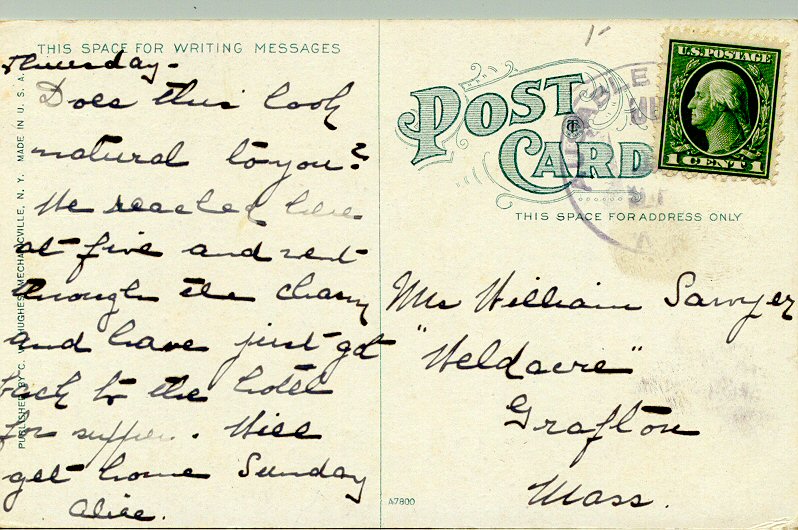 THIS SPACE FOR WRITING MESSAGES
Thursday -
Does this look
natural to you?
We reached here
at five and went
through the chasm
and have just got
back to the hotel
for supper. Will
get home Sunday
Alice.
PUBLISHED BY C. W. HUGHES, MECHANICVILLE, N. Y. MADE IN U. S. A.
POST
CARD
THIS SPACE FOR ADDRESS ONLY
U.S. POSTAGE
1 CENT 1
AUSABLE
Mrs William Sawyer
"Weldacre"
Grafton
Mass.
A7800